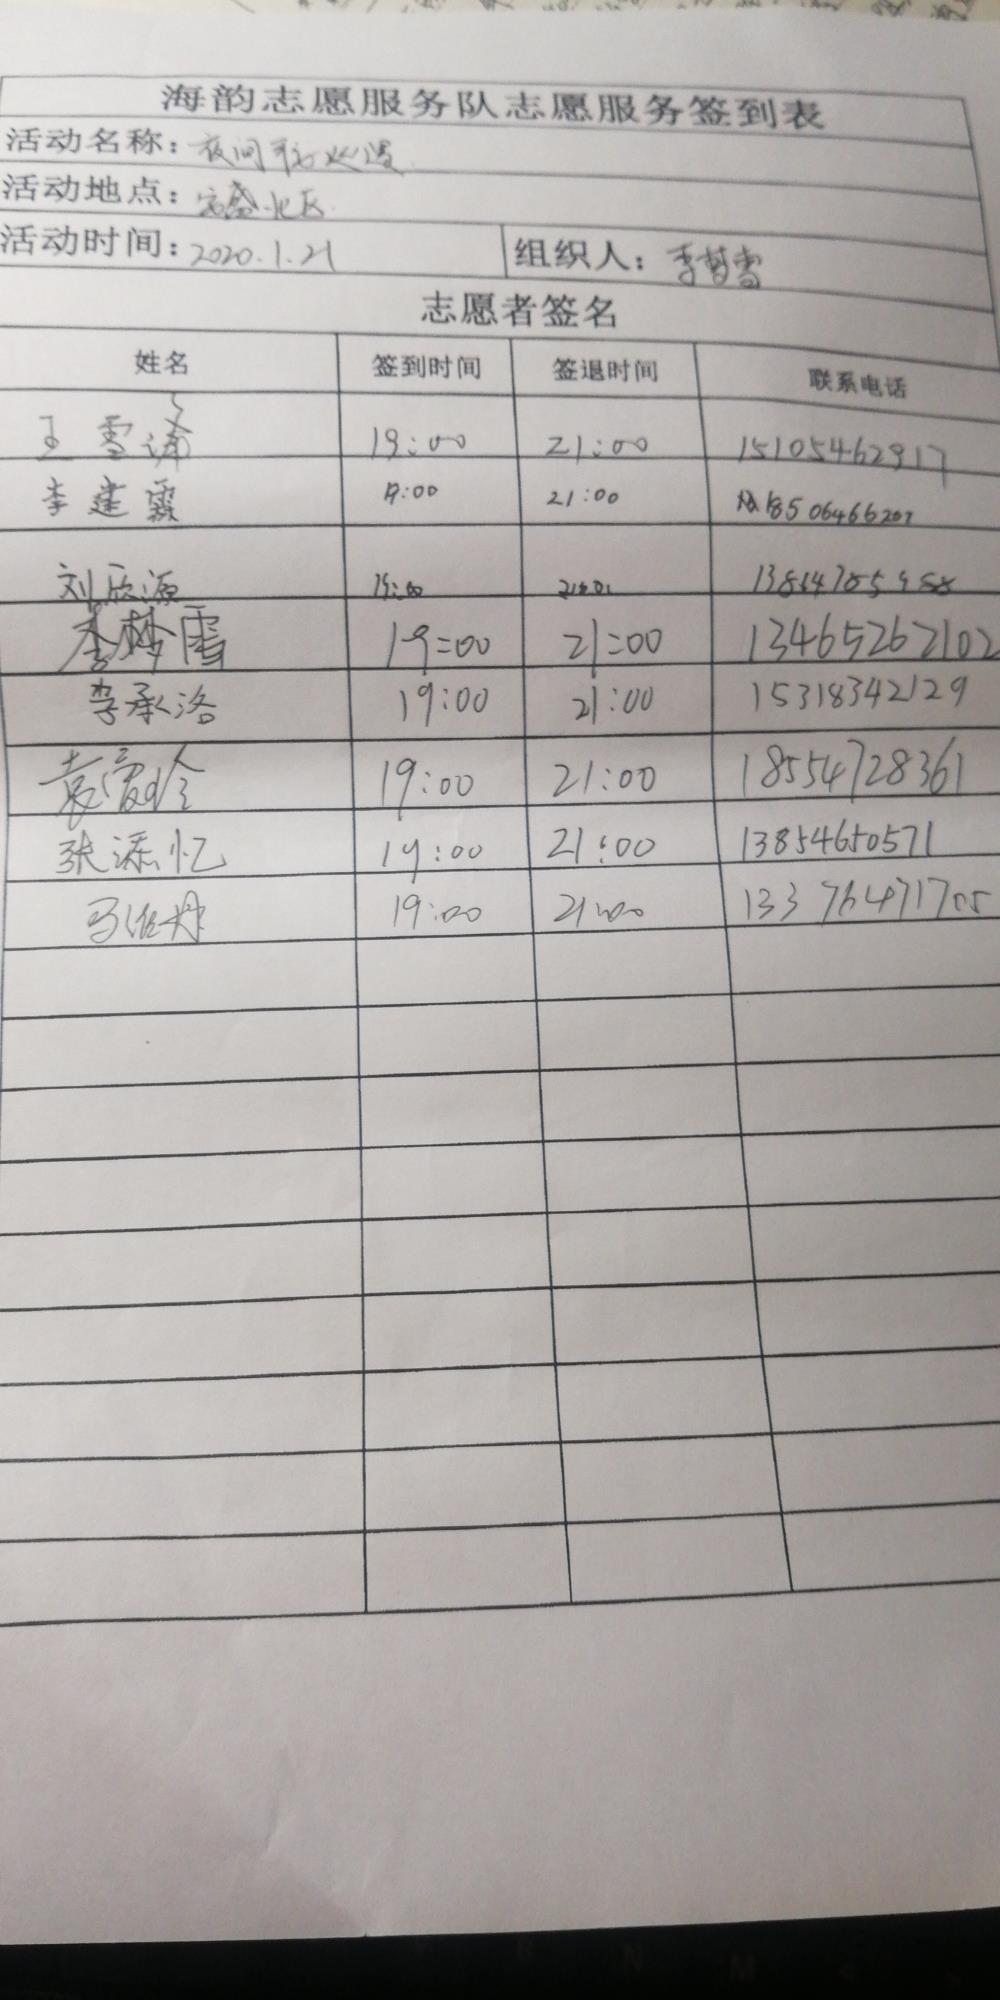 海韵志愿服务队志愿服务签到表
活动名称：夜间
活动地点：北区
活动时间：2020.1.21 组织人：李梦雪
志愿者签名
姓名 签到时间 签退时间 联系电话
王雪涛 19:00 21:00 15105462917
李建霞 19:00 21:00 18506466207
刘欣源 19:00 21:00
李梦雪 19:00 21:00 13465262102
李承洛 19:00 21:00 15318342129
袁爱玲 19:00 21:00 18554728361
张添忆 19:00 21:00 13854650571
马 19:00 21:00